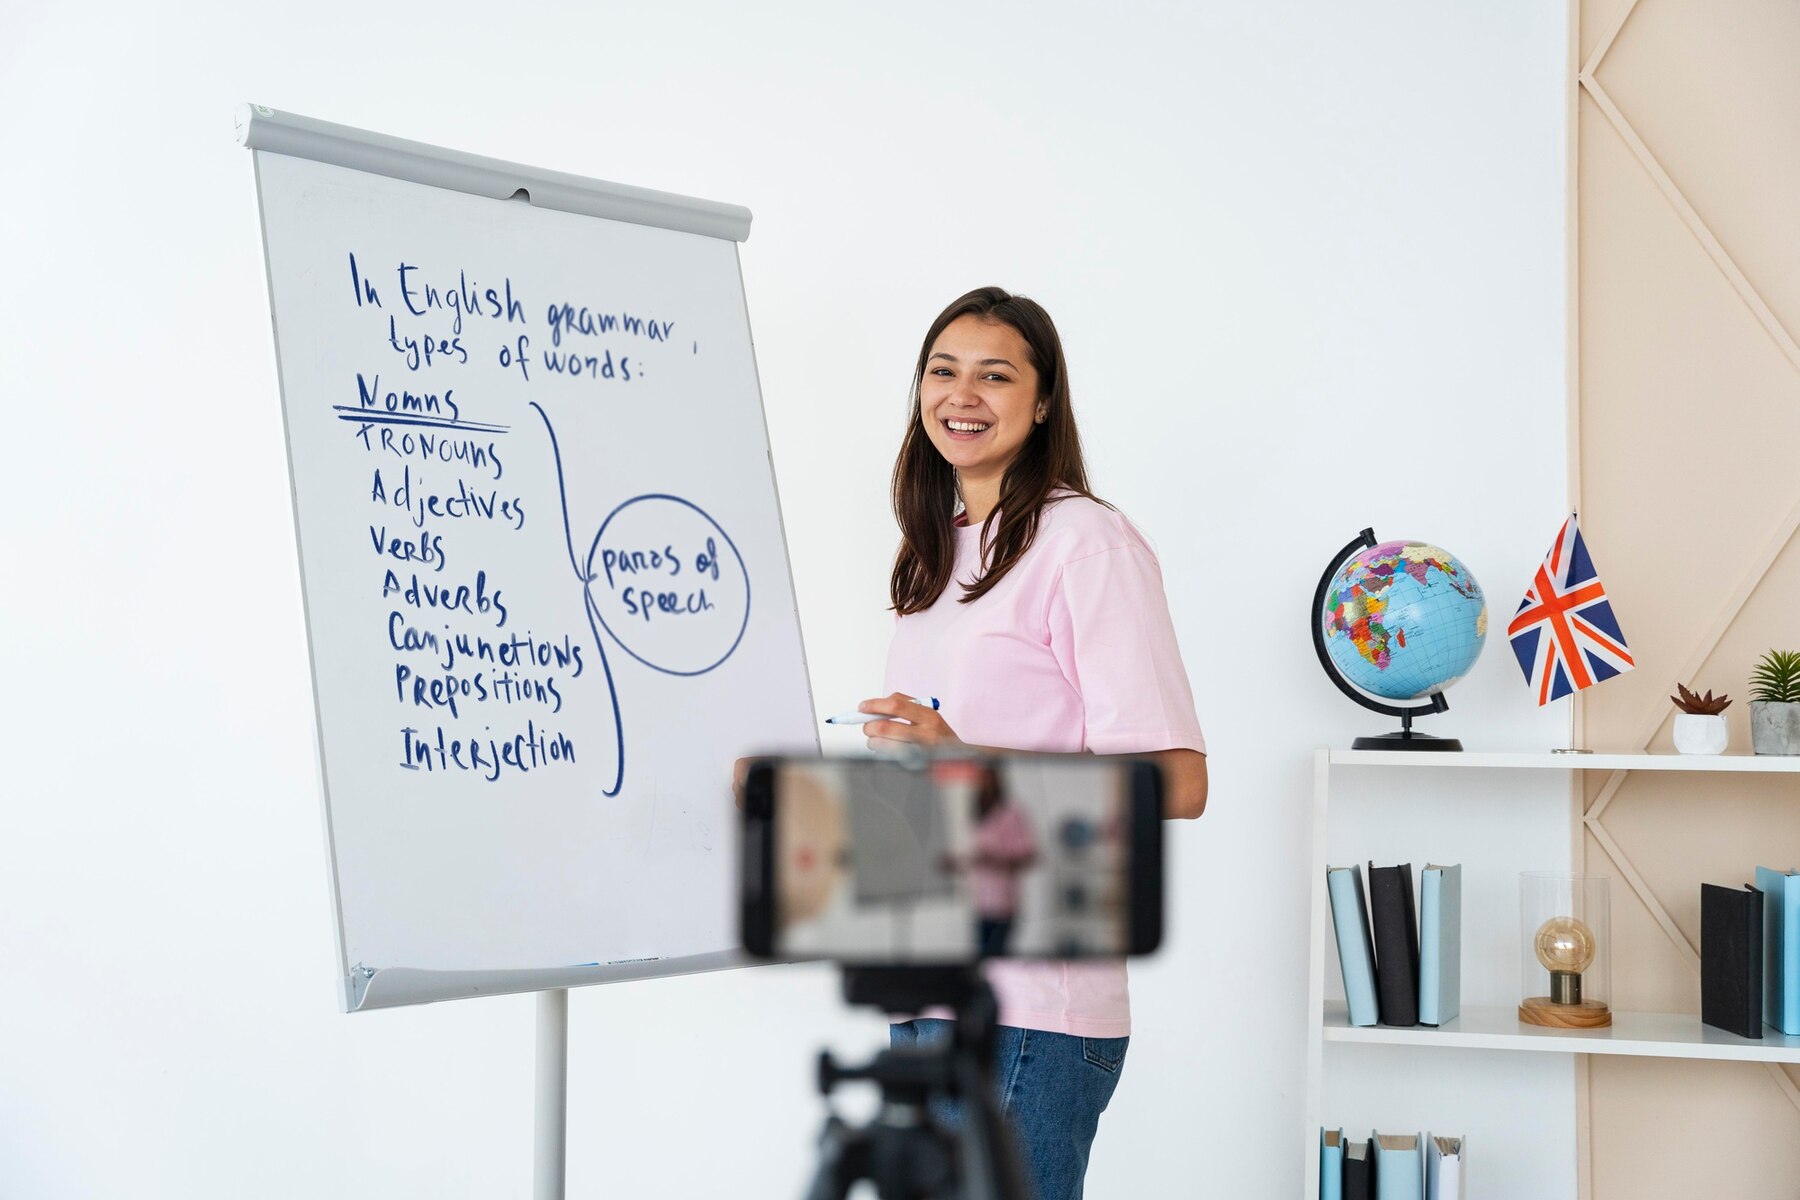 In English grammar,
types of words:
Nomns
PRONOUNS
Adjectives
Verbs
Adverbs
Conjunctions
Prepositions
Interjection
parts of
speech